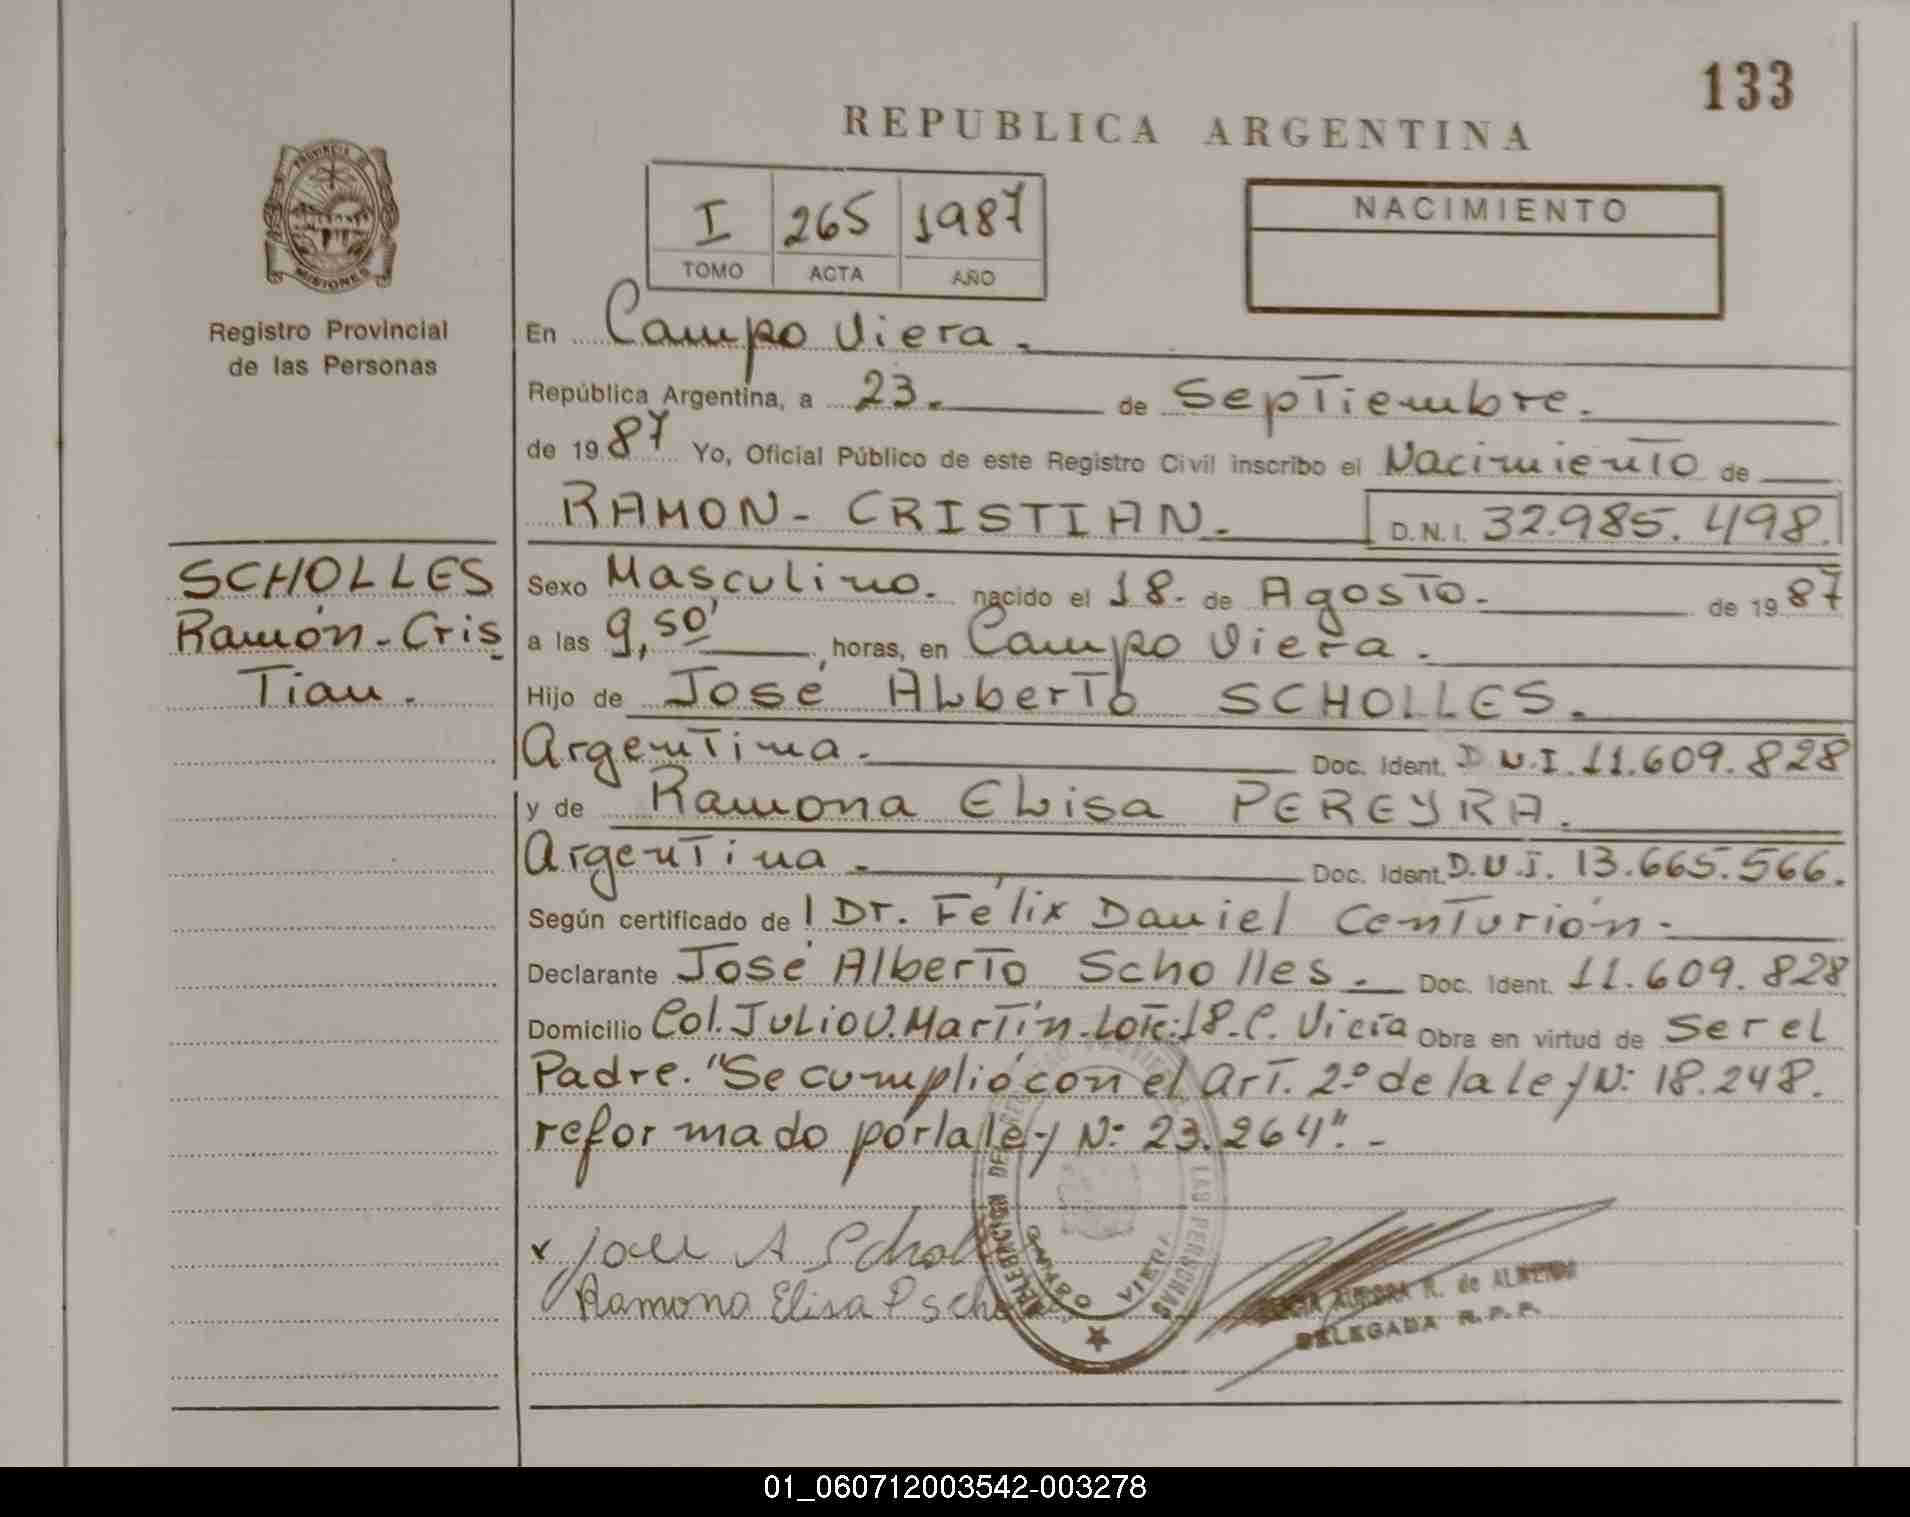 133
REPUBLICA ARGENTINA
PROVINCIA DE
MISIONES
Registro Provincial
de las Personas
I 265 1987
TOMO ACTA AÑO
NACIMIENTO
En Campo Viera.
República Argentina, a 23. de Septiembre.
de 1987 Yo, Oficial Público de este Registro Civil inscribo el Nacimiento de
RAMON- CRISTIAN. D.N.I. 32.985.498.
SCHOLLES
Ramón-Cris
Tian.
Sexo Masculino. nacido el 18. de Agosto. de 1987
a las 9,50' horas, en Campo Viera.
Hijo de José Alberto SCHOLLES.
Argentina. Doc. Ident. D.N.I. 11.609.828
y de Ramona Elisa PEREYRA.
Argentina. Doc. Ident. D.N.I. 13.665.566.
Según certificado de Dr. Félix Daniel Centurión.
Declarante José Alberto Scholles. Doc. Ident. 11.609.828
Domicilio Col. Julio U. Martín-Lote:18-C. Viera Obra en virtud de Ser el
Padre. "Se cumplió con el Art. 2º de la ley Nº 18.248.
reformado por la ley Nº 23.264".-
x José A Schol
Ramona Elisa P Sch
DELEGACION DE REGISTRO PROVINCIAL DE LAS PERSONAS
CAMPO VIERA
AURORA R. de ALMEIDA
DELEGADA R.P.P.
01_060712003542-003278